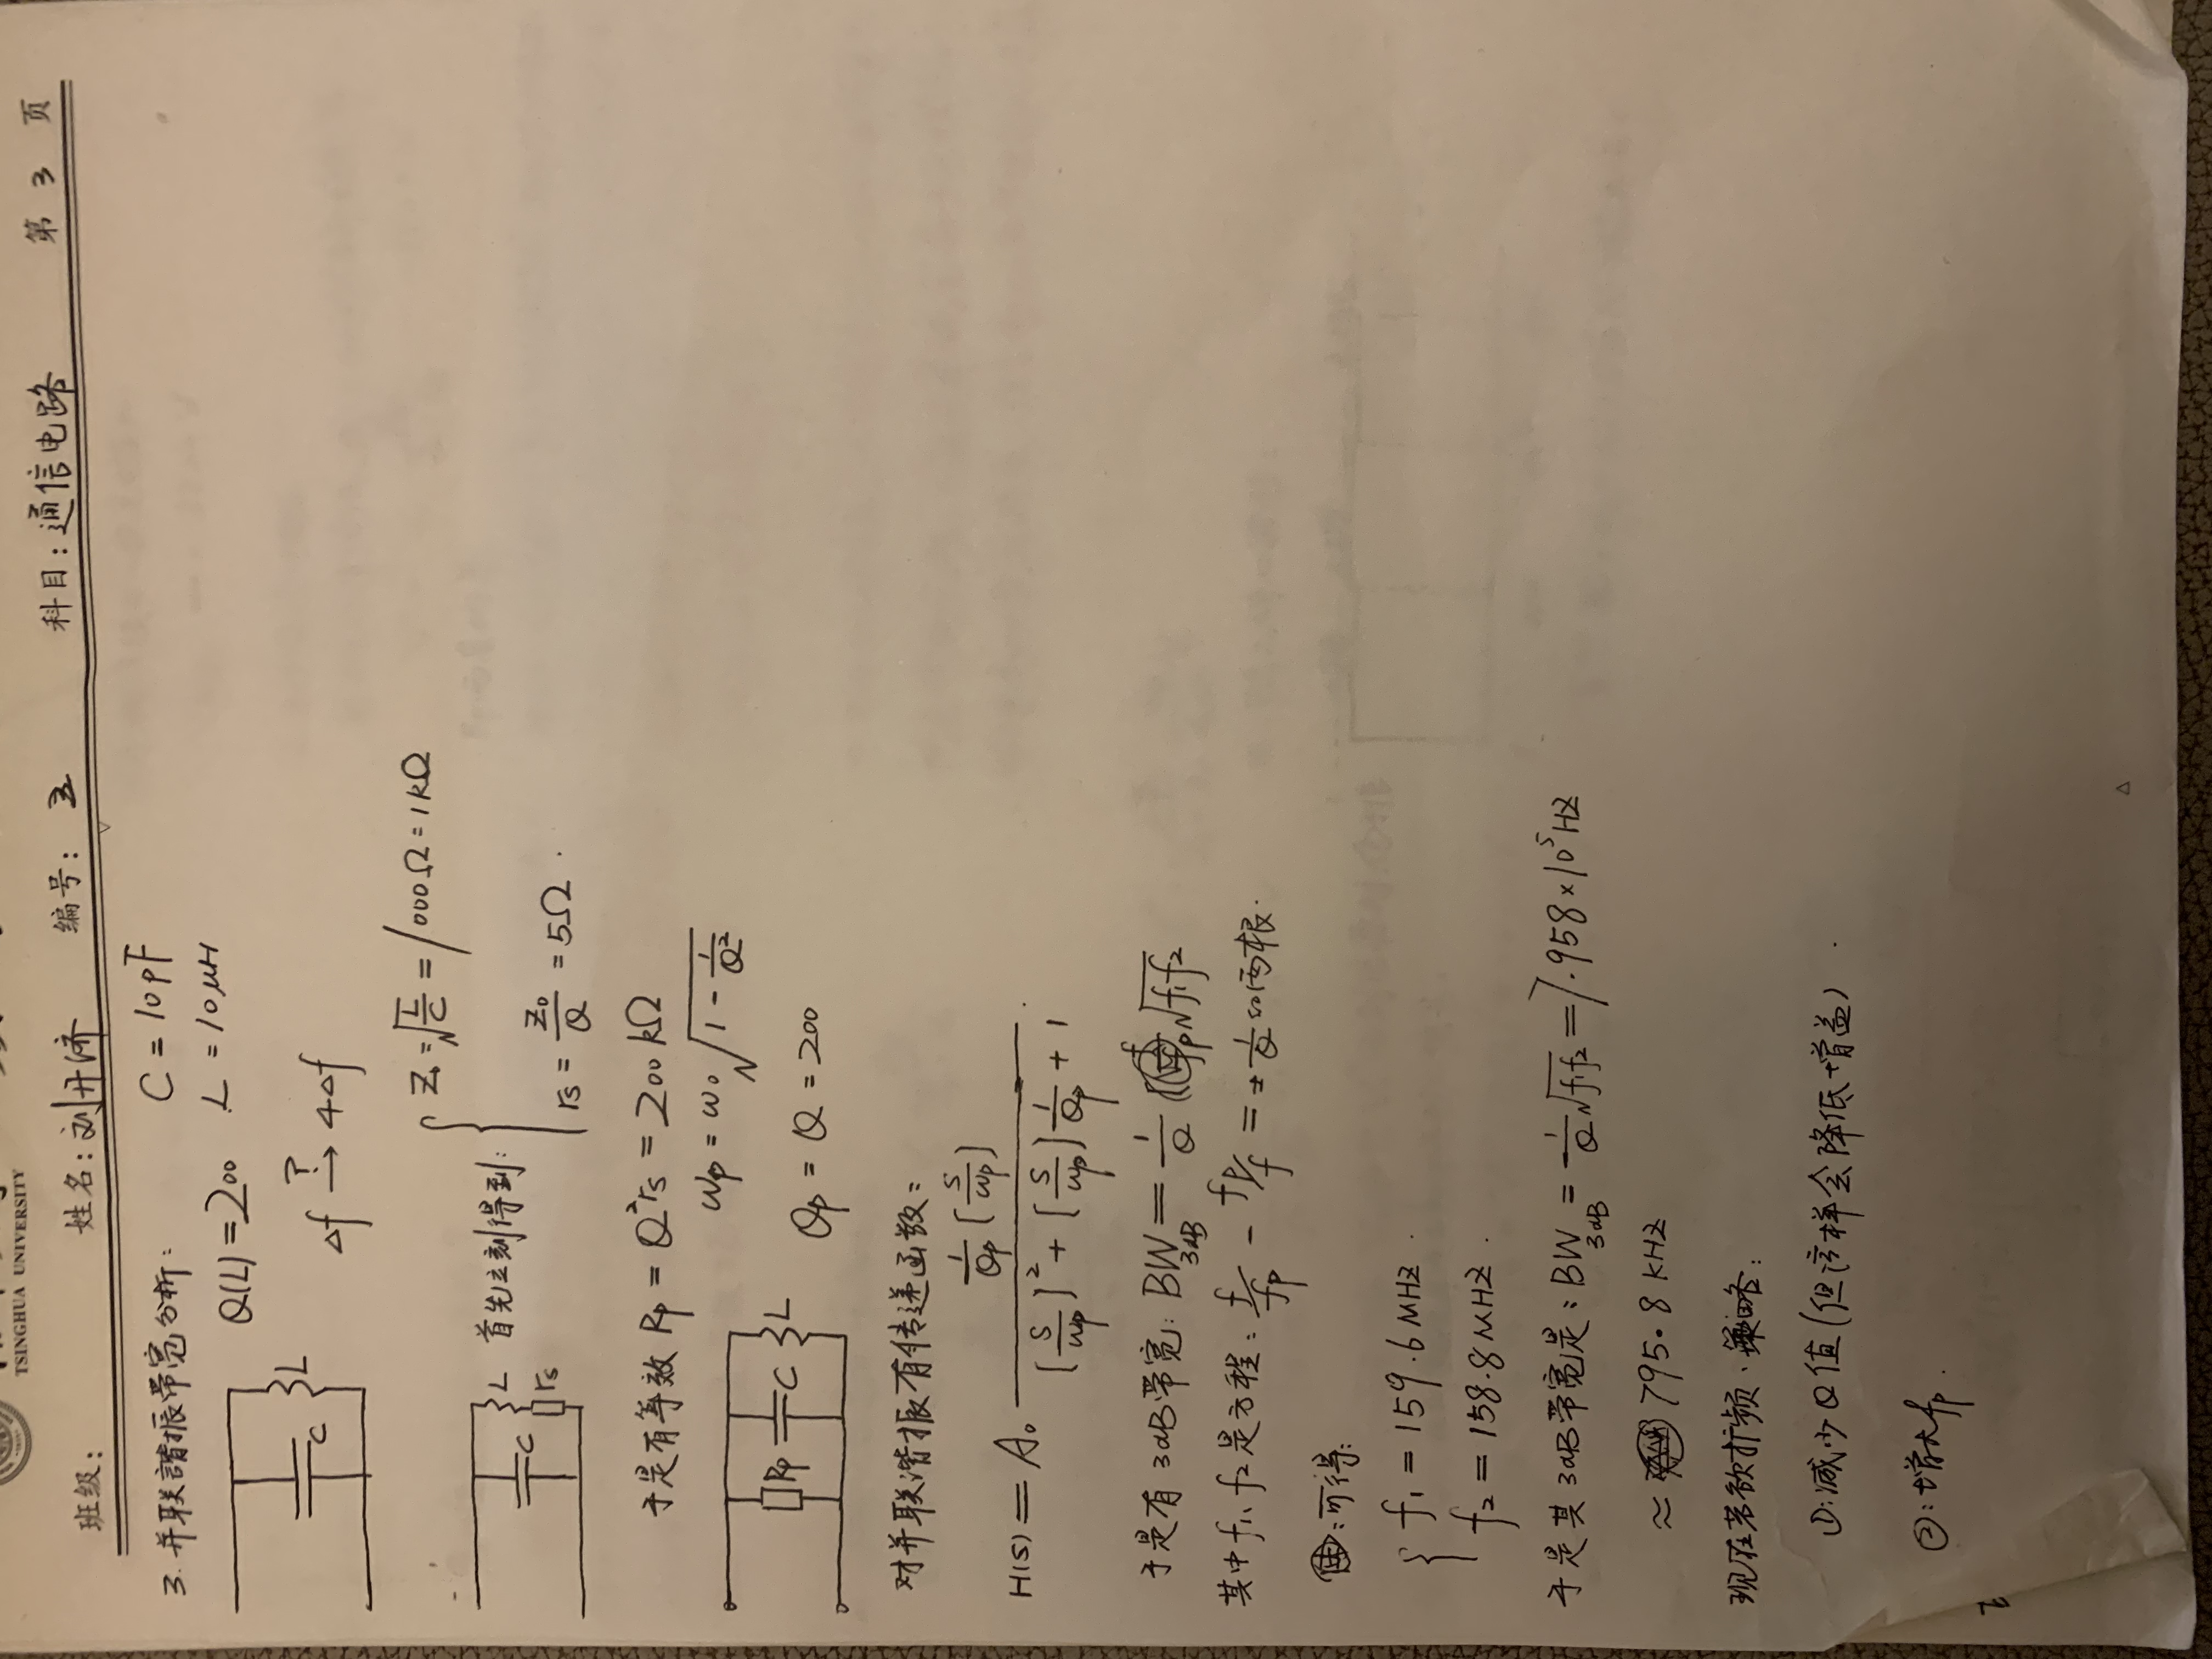 TSINGHUA UNIVERSITY
班级: 姓名:刘开济 编号: 3 科目:通信电路 第 3 页
3. 并联諧振带宽分析: C = 10pF
Q(L) = 200 L = 10μH
C L
Δf ?→ 4Δf
Z₀ = √(L/C) = 1000Ω = 1kΩ
C L rs 首先立刻得到:
rs = Z₀/Q = 5Ω.
于是有等效 Rp = Q²rs = 200kΩ
ωp = ω₀ √(1 - 1/Q²)
Rp C L
Qp = Q = 200
对并联谐振有传递函数:
H(s) = A₀ (1/Qp [s/ωp]) / ([s/ωp]² + [s/ωp] 1/Qp + 1).
于是有 3dB带宽: BW3dB = 1/Q √f₁f₂
其中f₁、f₂是方程: f/fp - fp/f = ± 1/Q 的两根.
:可得:
f₁ = 159.6 MHZ.
f₂ = 158.8 MHZ.
于是其3dB带宽是: BW3dB = 1/Q √f₁f₂ = 7.958×10⁵ HZ
≈ 795.8 KHZ
现在若欲扩频、策略:
①:减少Q值(但这样会降低增益).
②:增大fp.